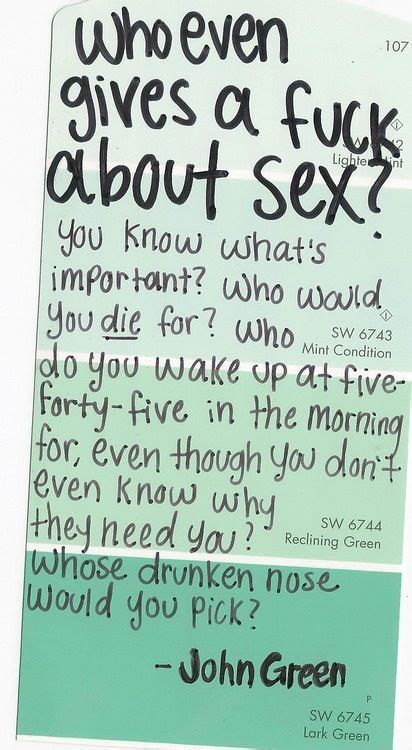 who even
107
gives a fuck
Lighter Mint
about sex?
you know what's
important? who would
you die for? who
SW 6743
Mint Condition
do you wake up at five-
forty-five in the morning
for, even though you don't
even know why
they need you?
SW 6744
Reclining Green
whose drunken nose
would you pick?
- John Green
P
SW 6745
Lark Green